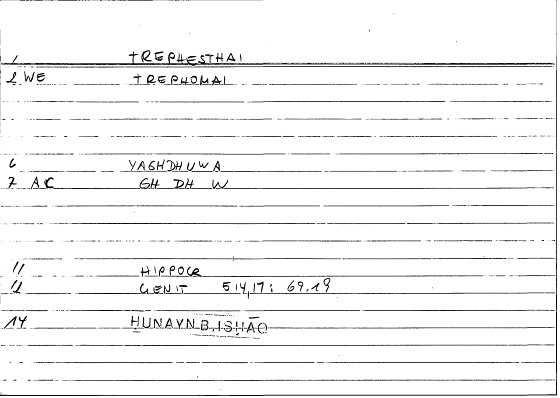 1 TREPHESTHAI
2 WE TREPHOMAI
6 YAGHDHUWA
7 AC GH DH W
11 HIPPOCR
12 GENIT 514,17: 69.19
14 ḤUNAYN B. ISḤĀQ